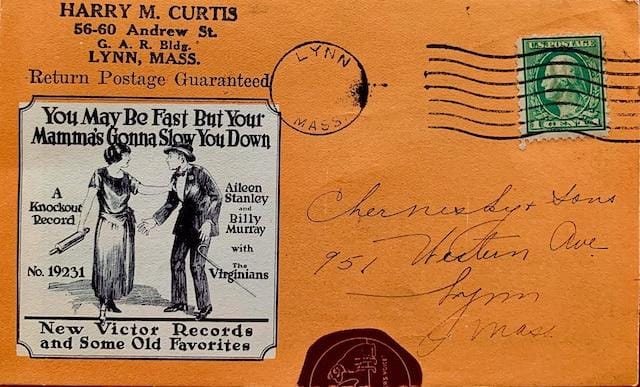 HARRY M. CURTIS
56-60 Andrew St.
G. A. R. Bldg.
LYNN, MASS.
Return Postage Guaranteed
LYNN
MASS.
U.S. POSTAGE
1 CENT 1
You May Be Fast But Your
Mamma's Gonna Slow You Down
A
Knockout
Record
No. 19231
Aileen
Stanley
and
Billy
Murray
with
The
Virginians
New Victor Records
and Some Old Favorites
& Sons
951 Western Ave.
Lynn
Mass.